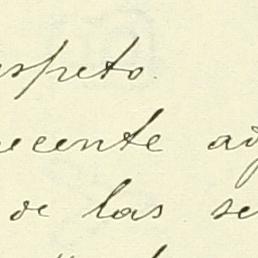 espeto.
ecente
de las se